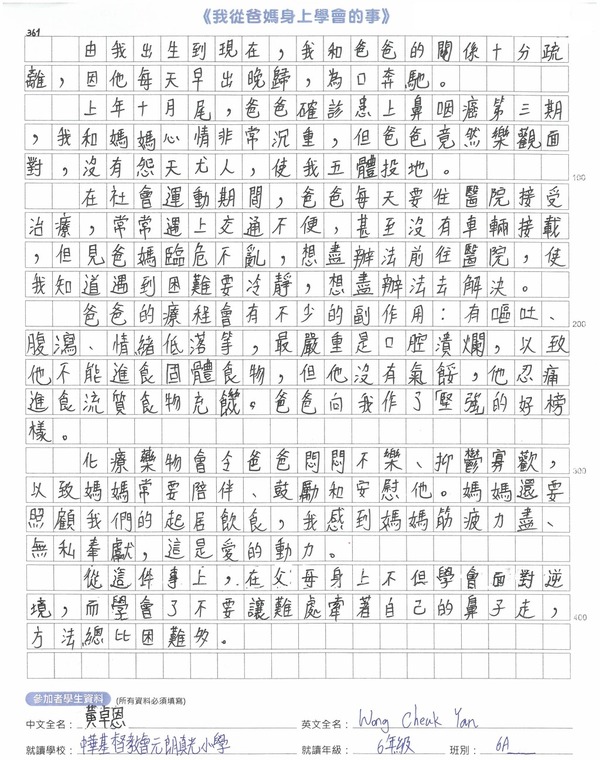 《我從爸媽身上學會的事》
361
由我出生到現在，我和爸爸的關係十分疏
離，因他每天早出晚歸，為口奔馳。
上年十月尾，爸爸確診患上鼻咽癌第三期
，我和媽媽心情非常沉重，但爸爸竟然樂觀面
對，沒有怨天尤人，使我五體投地。
100
在社會運動期間，爸爸每天要往醫院接受
治療，常常遇上交通不便，甚至沒有車輛接載
，但見爸媽臨危不亂，想盡辦法前往醫院，使
我知道遇到困難要冷靜，想盡辦法去解決。
爸爸的療程會有不少的副作用：有嘔吐、
200
腹瀉、情緒低落等，最嚴重是口腔潰爛，以致
他不能進食固體食物，但他沒有氣餒，他忍痛
進食流質食物充饑。爸爸向我作了堅強的好榜
樣。
化療藥物會令爸爸悶悶不樂、抑鬱寡歡，
300
以致媽媽常要陪伴、鼓勵和安慰他。媽媽還要
照顧我們的起居飲食，我感到媽媽筋疲力盡、
無私奉獻，這是愛的動力。
從這件事上，在父母身上不但學會面對逆
境，而學會了不要讓難處牽著自己的鼻子走，
400
方法總比困難多。
參加者學生資料 (所有資料必須填寫)
中文全名：黃卓恩 英文全名：Wong Cheuk Yan
就讀學校：中華基督教會元朗真光小學 就讀年級：6年級 班別：6A